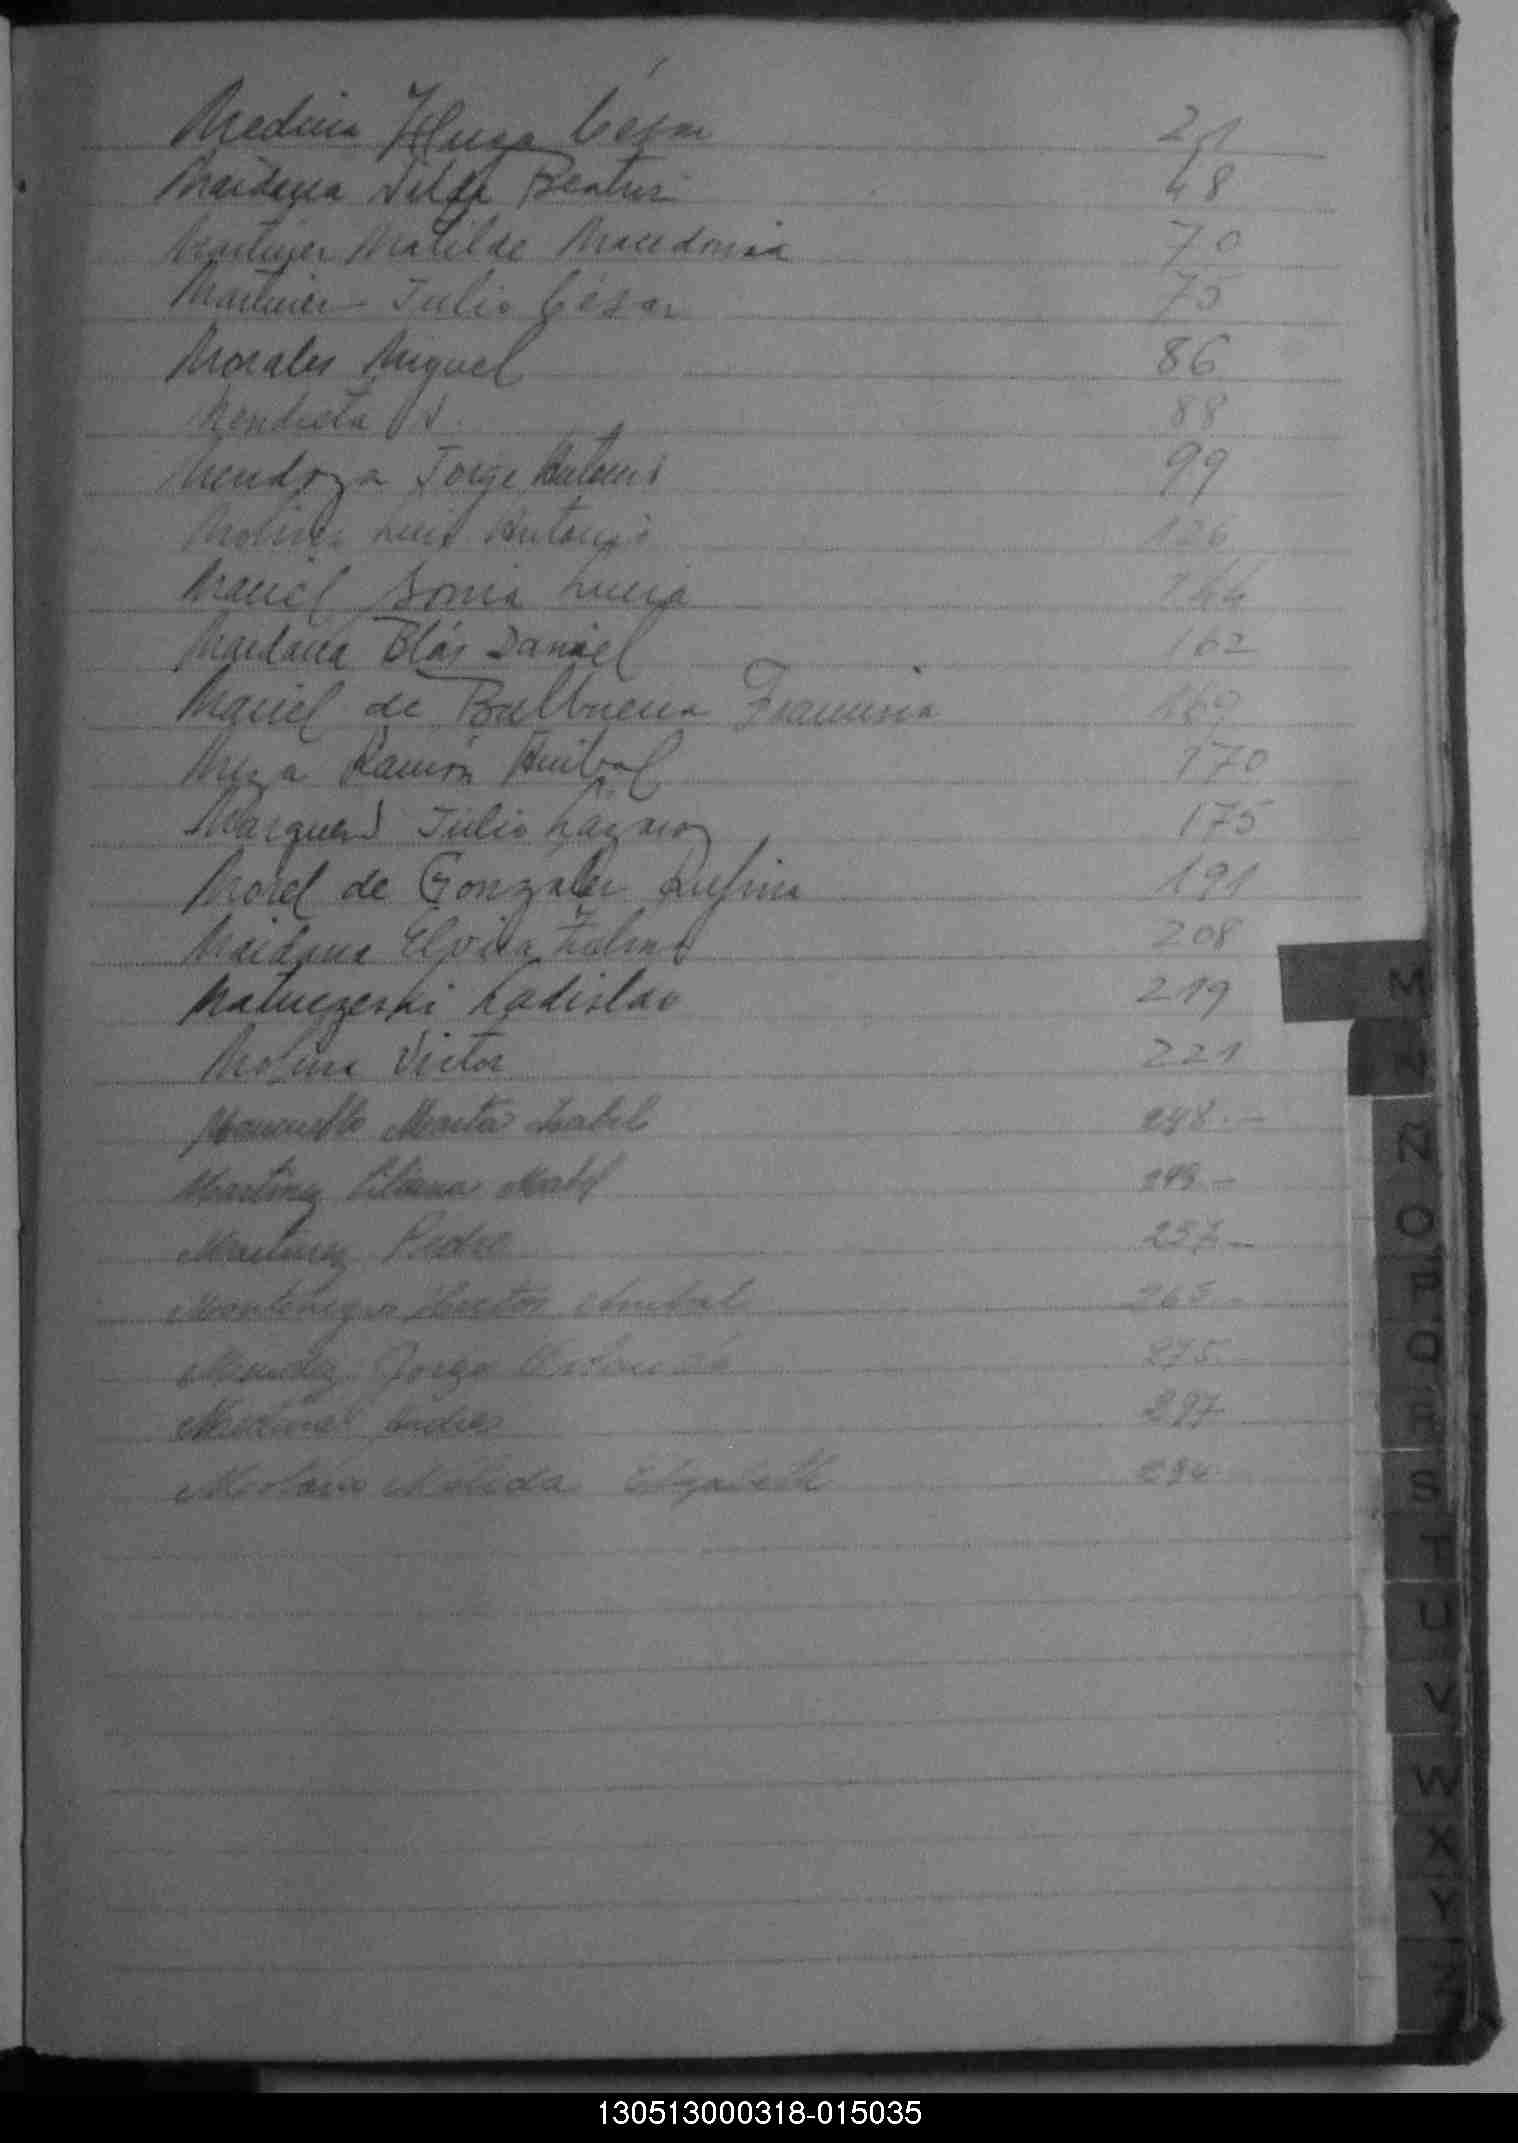 Medina Hugo César 21
Maidana Nilda Beatriz 48
Martinez Matilde Macedonia 70
Martinez Julio César 75
Morales Miguel 86
Mendieta 88
Mendoza Jorge Antonio 99
Molina Luis Antonio 126
Maciel Sonia Lucia 144
Maidana Blás Daniel 162
Maciel de Balbuena Francisca 169
Meza Ramón Anibal 170
Marquez Julio 175
Morel de González Rufina 191
Maidana Elvira Zulma 208
Matuczeski Ladislao 219
Molina Victor 221
Marta Isabel 248.-
Martinez Liliana Mabel 249.-
Martinez Pedro 257.-
Montenegro Hector Anibal 265.-
Mendez Jorge 275.-
Medina Andres 297
Nélida Elizabeth 294.-
M
N
Ñ
O
P
Q
R
S
T
U
V
W
X
Y
Z
130513000318-015035